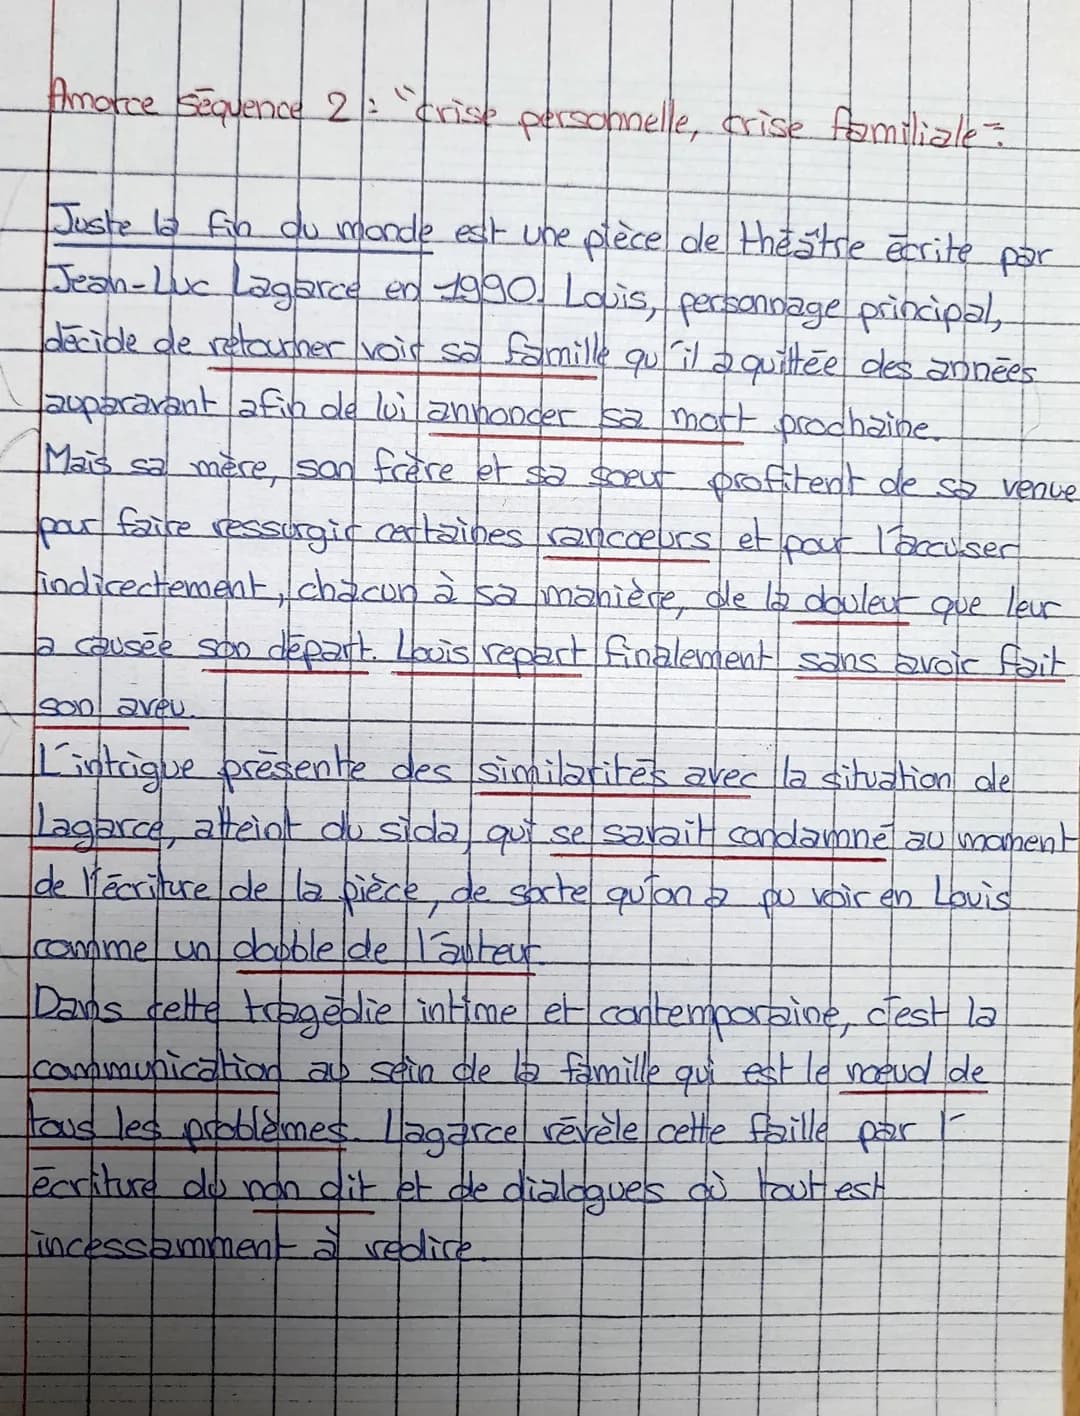 Amorce séquence 2 : "crise personnelle, crise familiale".
Juste la fin du monde est une pièce de théâtre écrite par
Jean-Luc Lagarce en 1990. Louis, personnage principal,
décide de retourner voir sa famille qu'il a quittée des années
auparavant afin de lui annoncer sa mort prochaine.
Mais sa mère, son frère et sa soeur profitent de sa venue
pour faire ressurgir certaines rancoeurs et pour l'accuser
indirectement, chacun à sa manière, de la douleur que leur
a causée son départ. Louis repart finalement sans avoir fait
son aveu.
L'intrigue présente des similarités avec la situation de
Lagarce, atteint du sida, qui se savait condamné au moment
de l'écriture de la pièce, de sorte qu'on a pu voir en Louis
comme un double de l'auteur.
Dans cette tragédie intime et contemporaine, c'est la
communication au sein de la famille qui est le noeud de
tous les problèmes. Lagarce révèle cette faille par l'
écriture du non dit et de dialogues où tout est
incessamment à redire.